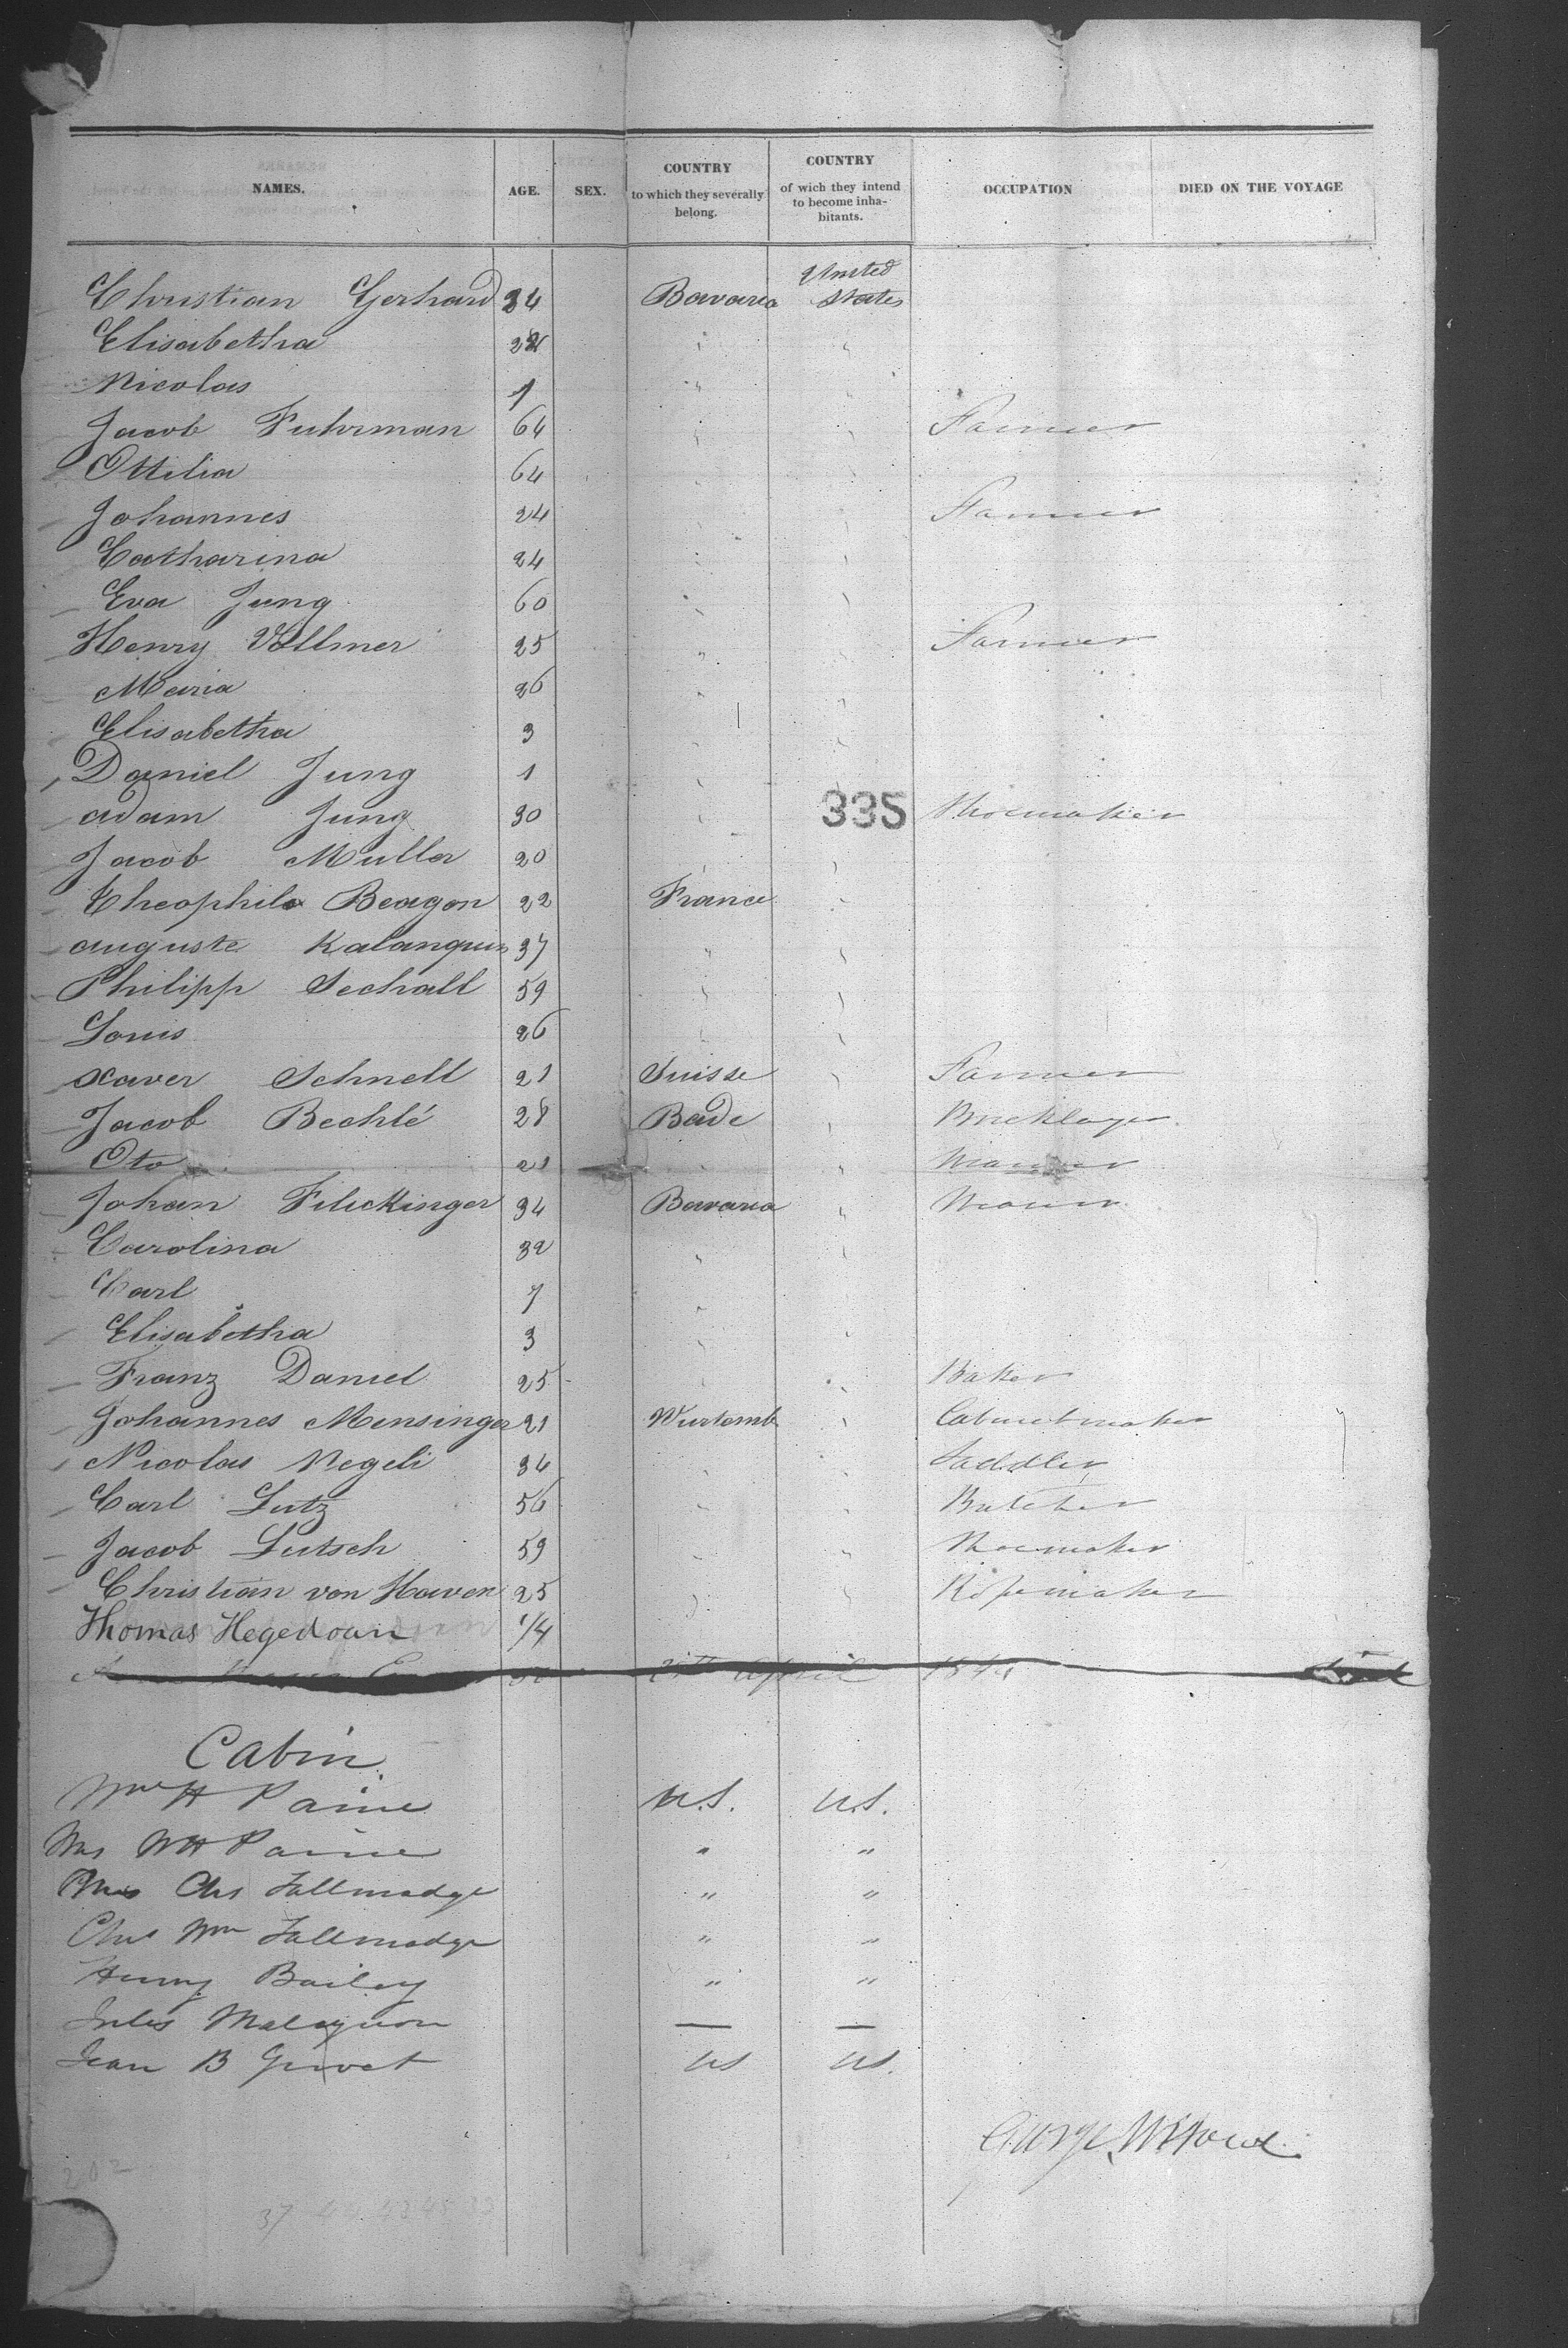 NAMES. AGE. SEX. COUNTRY to which they severally belong. COUNTRY of wich they intend to become inha-bitants. OCCUPATION DIED ON THE VOYAGE
Christian Gerhard 34 Bavaria United States
Elisabetha 28
Nicolas 1
Jacob Fuhrman 64 " " Farmer
Ottilia 64
Johannes 24 " " Farmer
Catharina 24 " "
Eva Jung 60 " "
Henry Vollmer 25 " " Farmer
Maria 26 " "
Elisabetha 3 " "
Daniel Jung 1 "
adam Jung 30 " 335 Shoemaker
Jacob Muller 20 " "
Theophile Beagon 22 France "
auguste Kalanquin 37 " "
Philipp Sechall 59 " "
Louis 26 " "
Xaver Schnell 21 Suisse " Farmer
Jacob Bechlé 28 Bade " Bricklayer
Oto 21 " "
Johan Flickinger 34 Bavaria " Mason
Carolina 32 " "
Carl 7 "
Elisabetha 3 " "
Franz Daniel 25 " " Baker
Johannes Mensinger 21 Wurtemb " Cabinetmaker
Nicolas Negeli 34 " " Saddler
Carl Lutz 56 " " Butcher
Jacob Lutsch 59 " " Shoemaker
Christian von Haven 25 " " Ropemaker
Thomas Hegedoan 1/4
April
Cabin
Wm H Paine U.S. U.S.
Mrs WH Paine " "
Mrs Chs Tallmadge " "
Chs Wm Tallmadge " "
Henry Bailey " "
Jules Malagnon — —
Jean B Grivet US US.
George
37